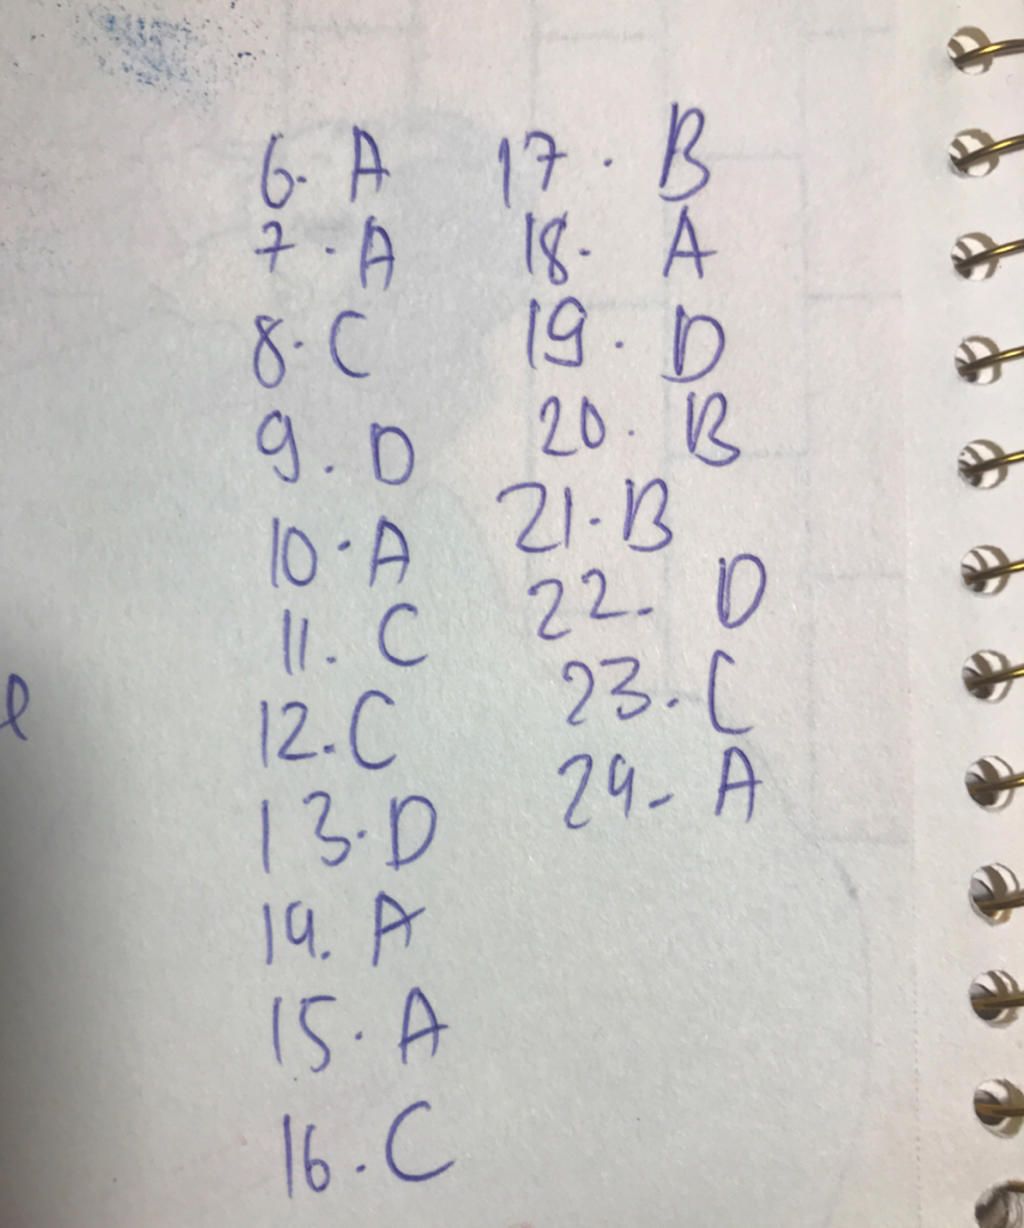 6. A
7. A
8. C
9. D
10. A
11. C
12. C
13. D
14. A
15. A
16. C
17. B
18. A
19. D
20. B
21. B
22. D
23. C
24. A